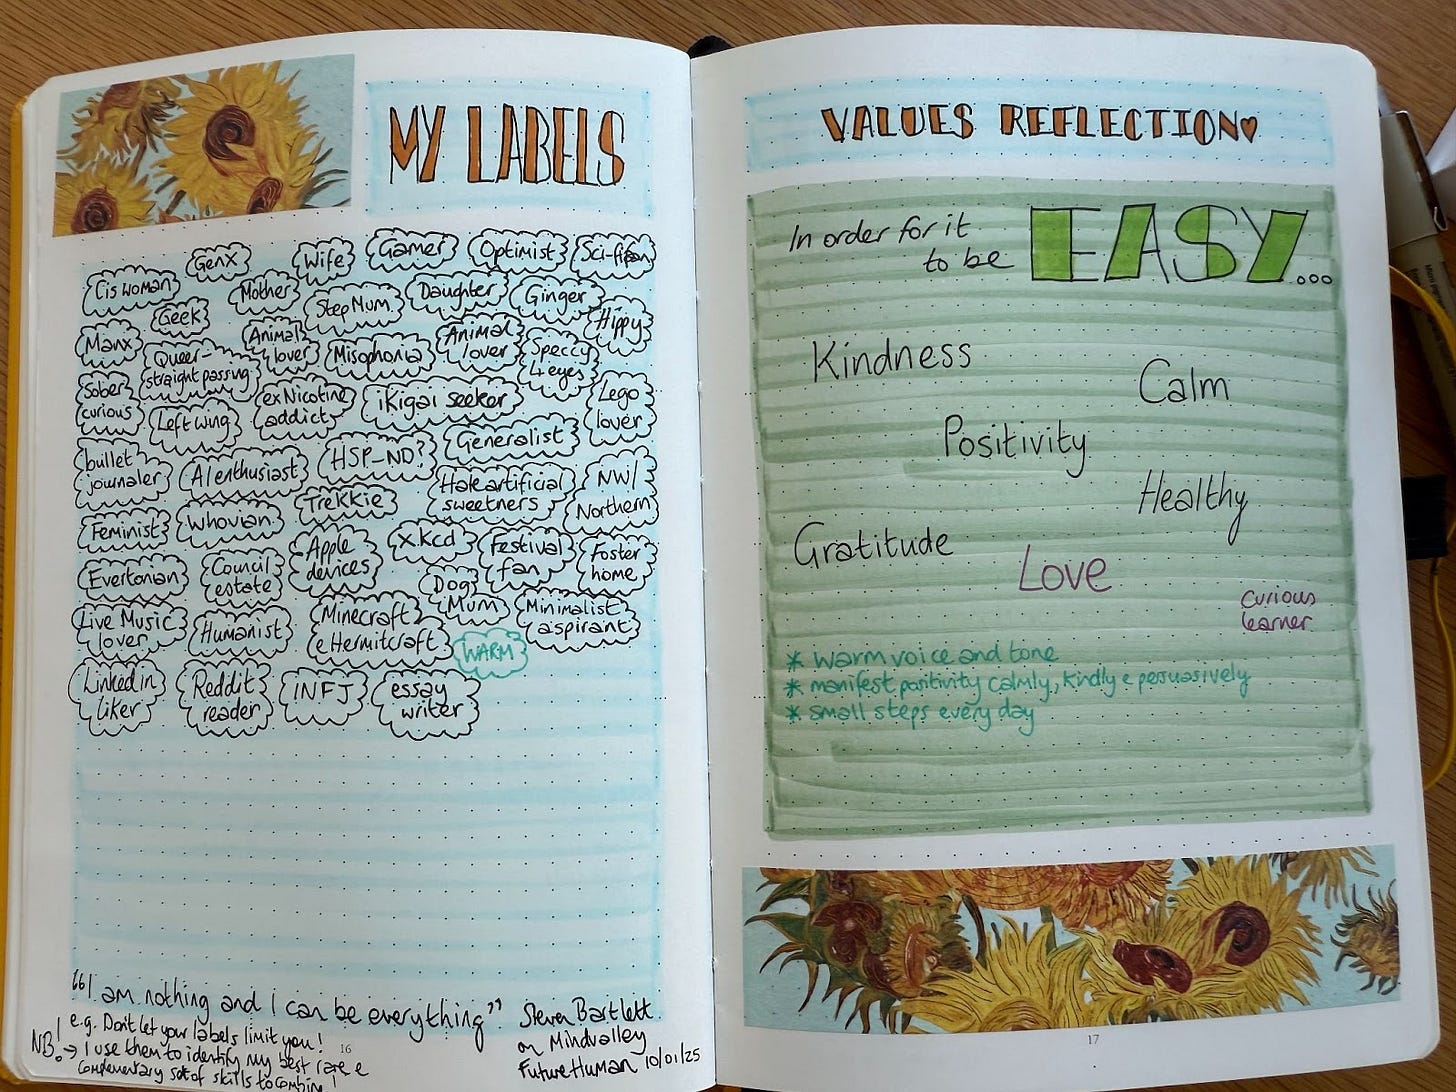 MY LABELS
GenX
Wife
Gamer
Optimist
Sci-fi fan
Cis woman
Mother
Step Mum
Daughter
Ginger
Hippy
Geek
Manx
Animal
lover
Misophonia
Animal
lover
Speccy
4 eyes
Queer-
straight passing
Sober
curious
Left wing
ex Nicotine
addict
iKigai seeker
Lego
lover
bullet
journaler
AI enthusiast
HSP-ND?
Generalist
Hate artificial
sweetners
NW/
Northern
Feminist
Whovian
Trekkie
xkcd
Festival
fan
Foster
home
Evertonian
Council
estate
Apple
devices
Dog
Mum
Minimalist
aspirant
Live Music
lover
Humanist
Minecraft
& Hermitcraft
WARM
Linkedin
liker
Reddit
reader
INFJ
essay
writer
"I am nothing and I can be everything" Steven Bartlett
on Mindvalley
Future Human 10/01/25
e.g. Don't let your labels limit you!
NB! → I use them to identify my best rare &
complementary set of skills to combine!
16
VALUES REFLECTION
In order for it
to be EASY...
Kindness
Calm
Positivity
Healthy
Gratitude
Love
curious
learner
* warm voice and tone
* manifest positivity calmly, kindly & persuasively
* small steps every day
17